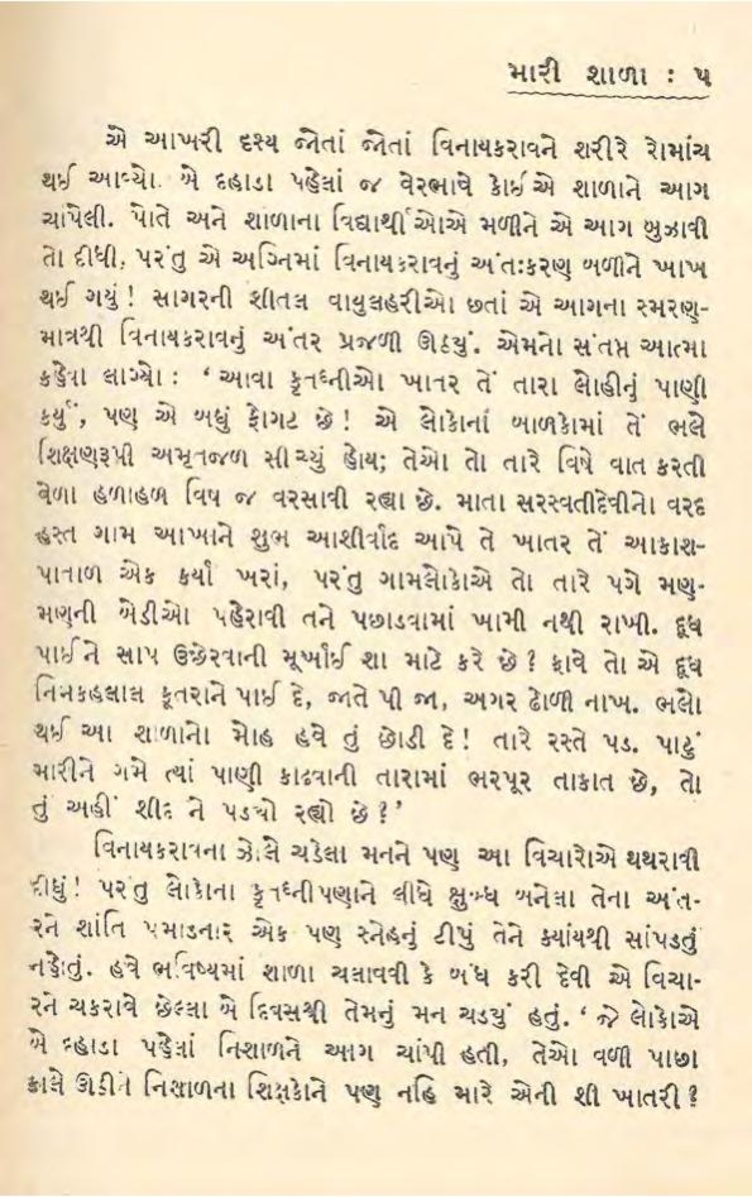 મારી શાળા : ૫
એ આખરી દૃશ્ય જોતાં જોતાં વિનાયકરાવને શરીરે રોમાંચ
થઈ આવ્યો. બે દહાડા પહેલાં જ વેરભાવે કોઈએ શાળાને આગ
ચાંપેલી. પોતે અને શાળાના વિદ્યાર્થીઓએ મળીને એ આગ બુઝાવી
તો દીધી, પરંતુ એ અગ્નિમાં વિનાયકરાવનું અંતઃકરણ બળીને ખાખ
થઈ ગયું! સાગરની શીતલ વાયુલહરીઓ છતાં એ આગના સ્મરણ-
માત્રથી વિનાયકરાવનું અંતર પ્રજળી ઊઠ્યું. એમનો સંતપ્ત આત્મા
કહેવા લાગ્યો : ‘આવા કૃતઘ્નીઓ ખાતર તેં તારા લોહીનું પાણી
કર્યું, પણ એ બધું ફોગટ છે! એ લોકોનાં બાળકોમાં તેં ભલે
શિક્ષણરૂપી અમૃતજળ સીંચ્યું હોય; તેઓ તો તારે વિષે વાત કરતી
વેળા હળાહળ વિષ જ વરસાવી રહ્યા છે. માતા સરસ્વતીદેવીનો વરદ
હસ્ત ગામ આખાને શુભ આશીર્વાદ આપે તે ખાતર તેં આકાશ-
પાતાળ એક કર્યાં ખરાં, પરંતુ ગામલોકોએ તો તારે પગે મણ-
મણની બેડીઓ પહેરાવી તને પછાડવામાં ખામી નથી રાખી. દૂધ
પાઈને સાપ ઉછેરવાની મૂર્ખાઈ શા માટે કરે છે? ફાવે તો એ દૂધ
નિમકહલાલ કૂતરાને પાઈ દે, જાતે પી જા, અગર ઢોળી નાખ. ભલો
થઈ આ શાળાનો મોહ હવે તું છોડી દે! તારે રસ્તે પડ. પાટું
મારીને ગમે ત્યાં પાણી કાઢવાની તારામાં ભરપૂર તાકાત છે, તો
તું અહીં શીદ ને પડ્યો રહ્યો છે?’
વિનાયકરાવના ઝોલે ચડેલા મનને પણ આ વિચારોએ થથરાવી
દીધું! પરંતુ લોકોના કૃતઘ્નીપણાને લીધે ક્ષુબ્ધ બનેલા તેના અંત-
રને શાંતિ પમાડનાર એક પણ સ્નેહનું ટીપું તેને ક્યાંયથી સાંપડતું
નહોતું. હવે ભવિષ્યમાં શાળા ચલાવવી કે બંધ કરી દેવી એ વિચા-
રને ચકરાવે છેલ્લા બે દિવસથી તેમનું મન ચડ્યું હતું. ‘જે લોકોએ
બે દહાડા પહેલાં નિશાળને આગ ચાંપી હતી, તેઓ વળી પાછા
કાલે ઊઠીને નિશાળના શિક્ષકોને પણ નહિ મારે એની શી ખાતરી?